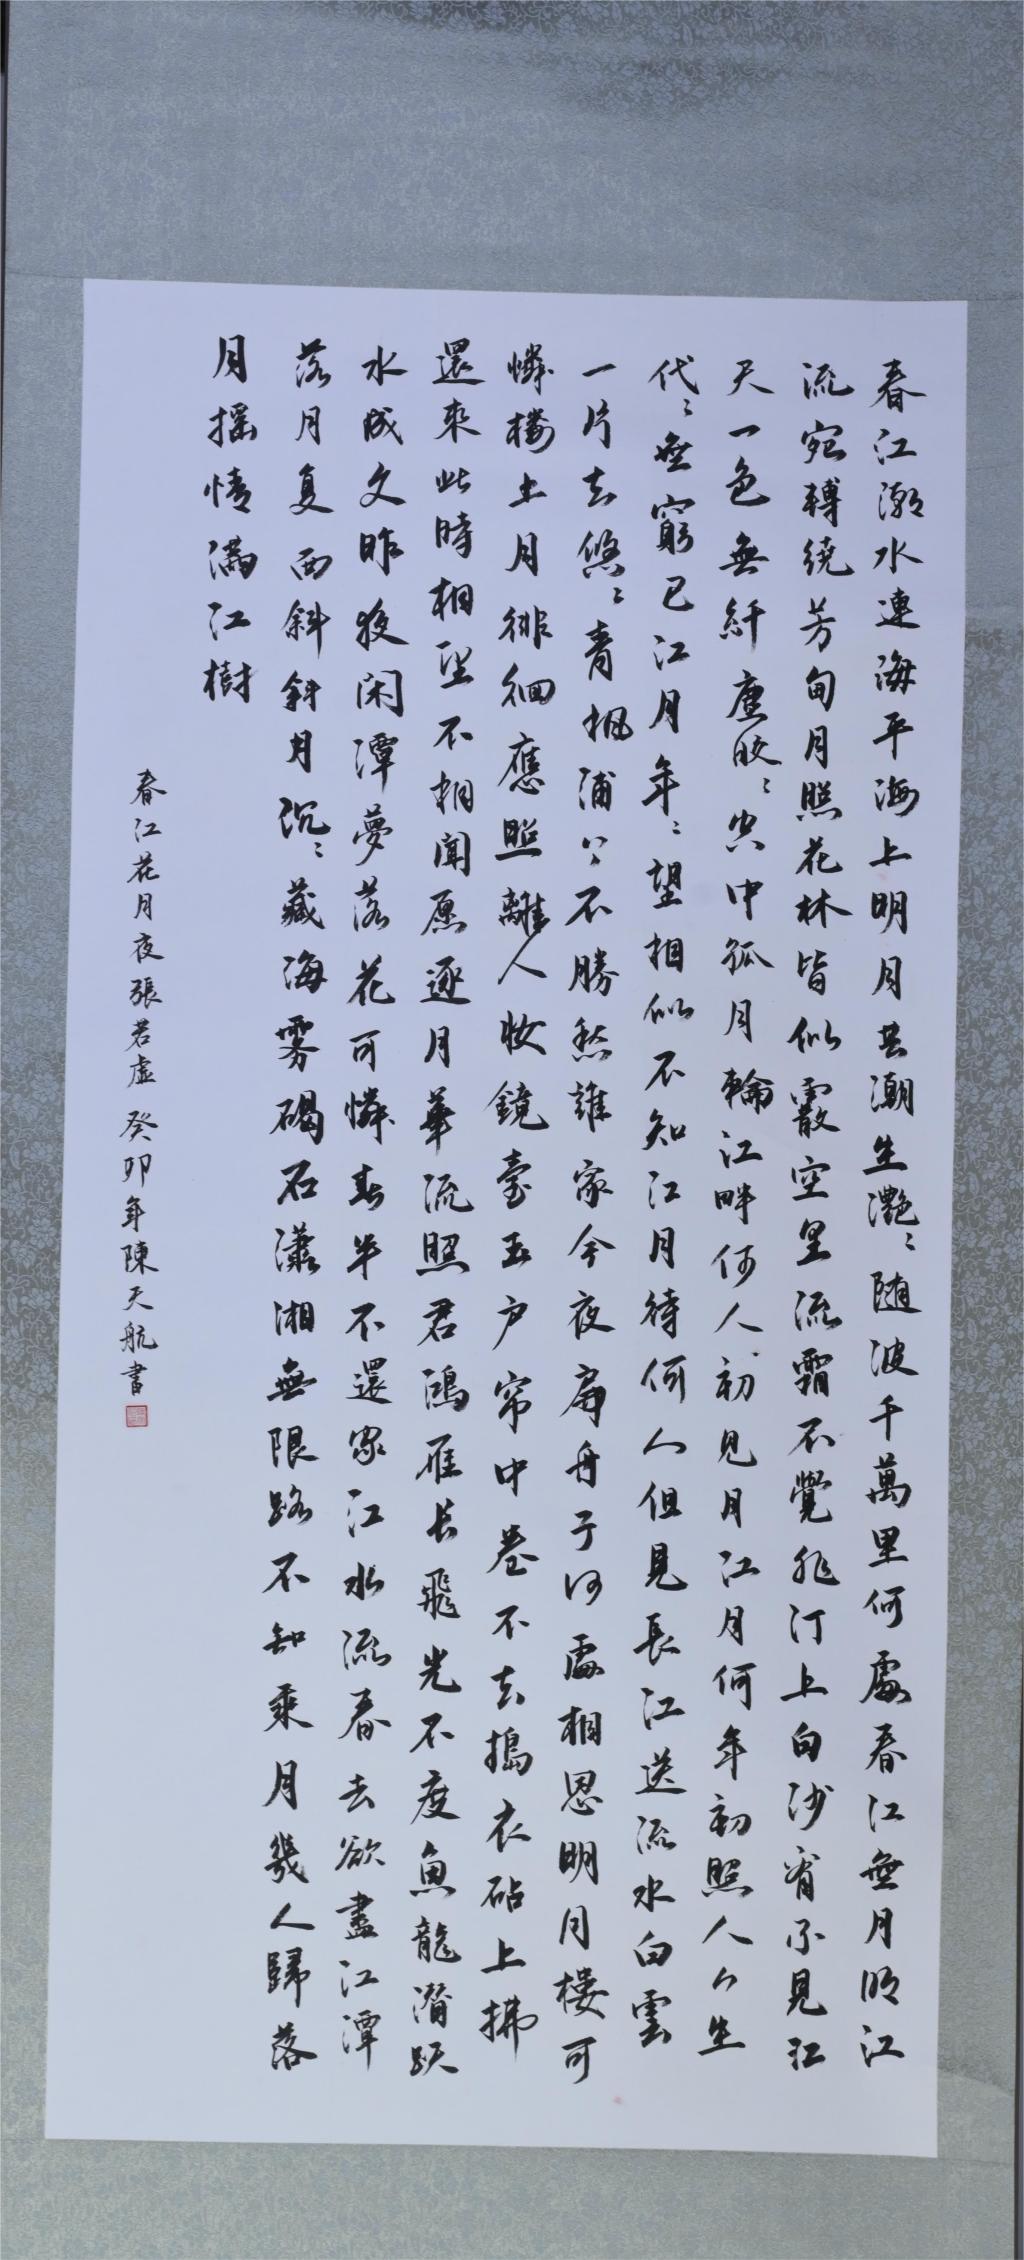 春江潮水連海平海上明月共潮生灔〻随波千萬里何處春江無月明江
流宛轉繞芳甸月照花林皆似霰空里流霜不覺飛汀上白沙看不見江
天一色無纤塵皎〻空中孤月輪江畔何人初見月江月何年初照人人生
代〻無窮已江月年〻望相似不知江月待何人但見長江送流水白雲
一片去悠〻青楓浦上不勝愁誰家今夜扁舟子何處相思明月樓可
憐楼上月徘徊應照離人妝鏡臺玉户帘中卷不去搗衣砧上拂
還來此時相望不相聞愿逐月華流照君鴻雁长飛光不度魚龍潜跃
水成文昨夜闲潭夢落花可憐春半不還家江水流春去欲盡江潭
落月复西斜斜月沉〻藏海雾碣石瀟湘無限路不知乘月幾人歸落
月摇情满江樹
春江花月夜張若虚 癸卯年陳天航書